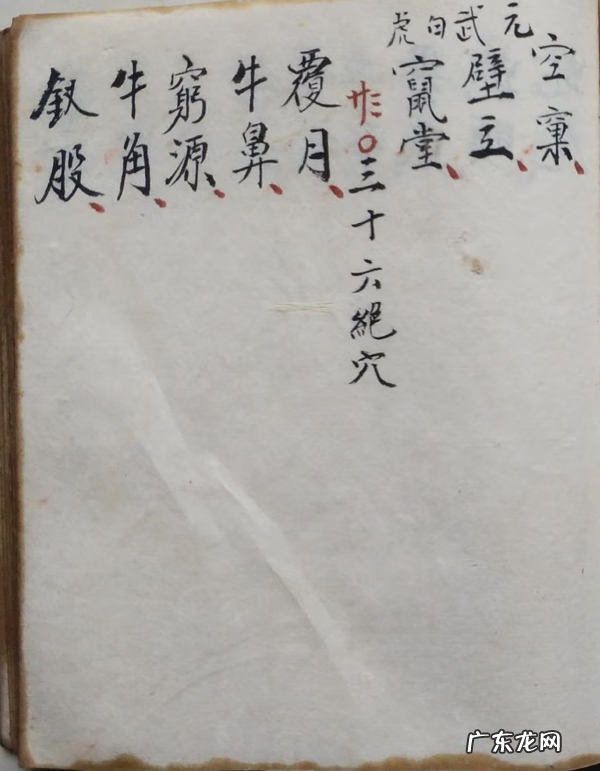 元武白虎
空窠、
壁立、
竄堂、
廿三○三十六絕穴
覆月、
牛鼻、
窮源、
牛角、
釵股、
广东龙网